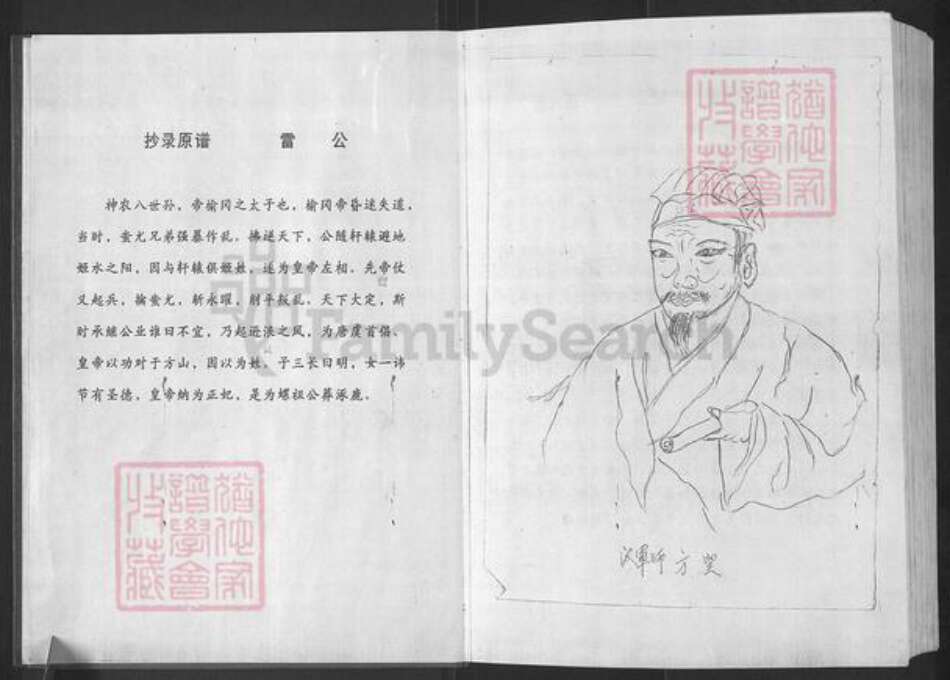 抄录原谱 雷 公
神农八世孙，帝榆冈之太于也，榆冈帝昏迷失道，
当时，蚩尤兄弟强暴作乱。拂逆天下，公随轩辕避地
姬水之阳，因与轩辕俱姬姓，遂为皇帝左相。先帝仗
义起兵，擒蚩尤，斩永曜，削平叛乱。天下大定，斯
时承继公业谁曰不宜，乃起逊浪之风，为唐虞首倡。
皇帝以功对于方山，因以为姓，子三长曰明，女一讳
节有圣德，皇帝纳为正妃，是为螺祖公葬涿鹿。
FamilySearch
方
猶他家
譜學會
收藏
猶他家
譜學會
收藏